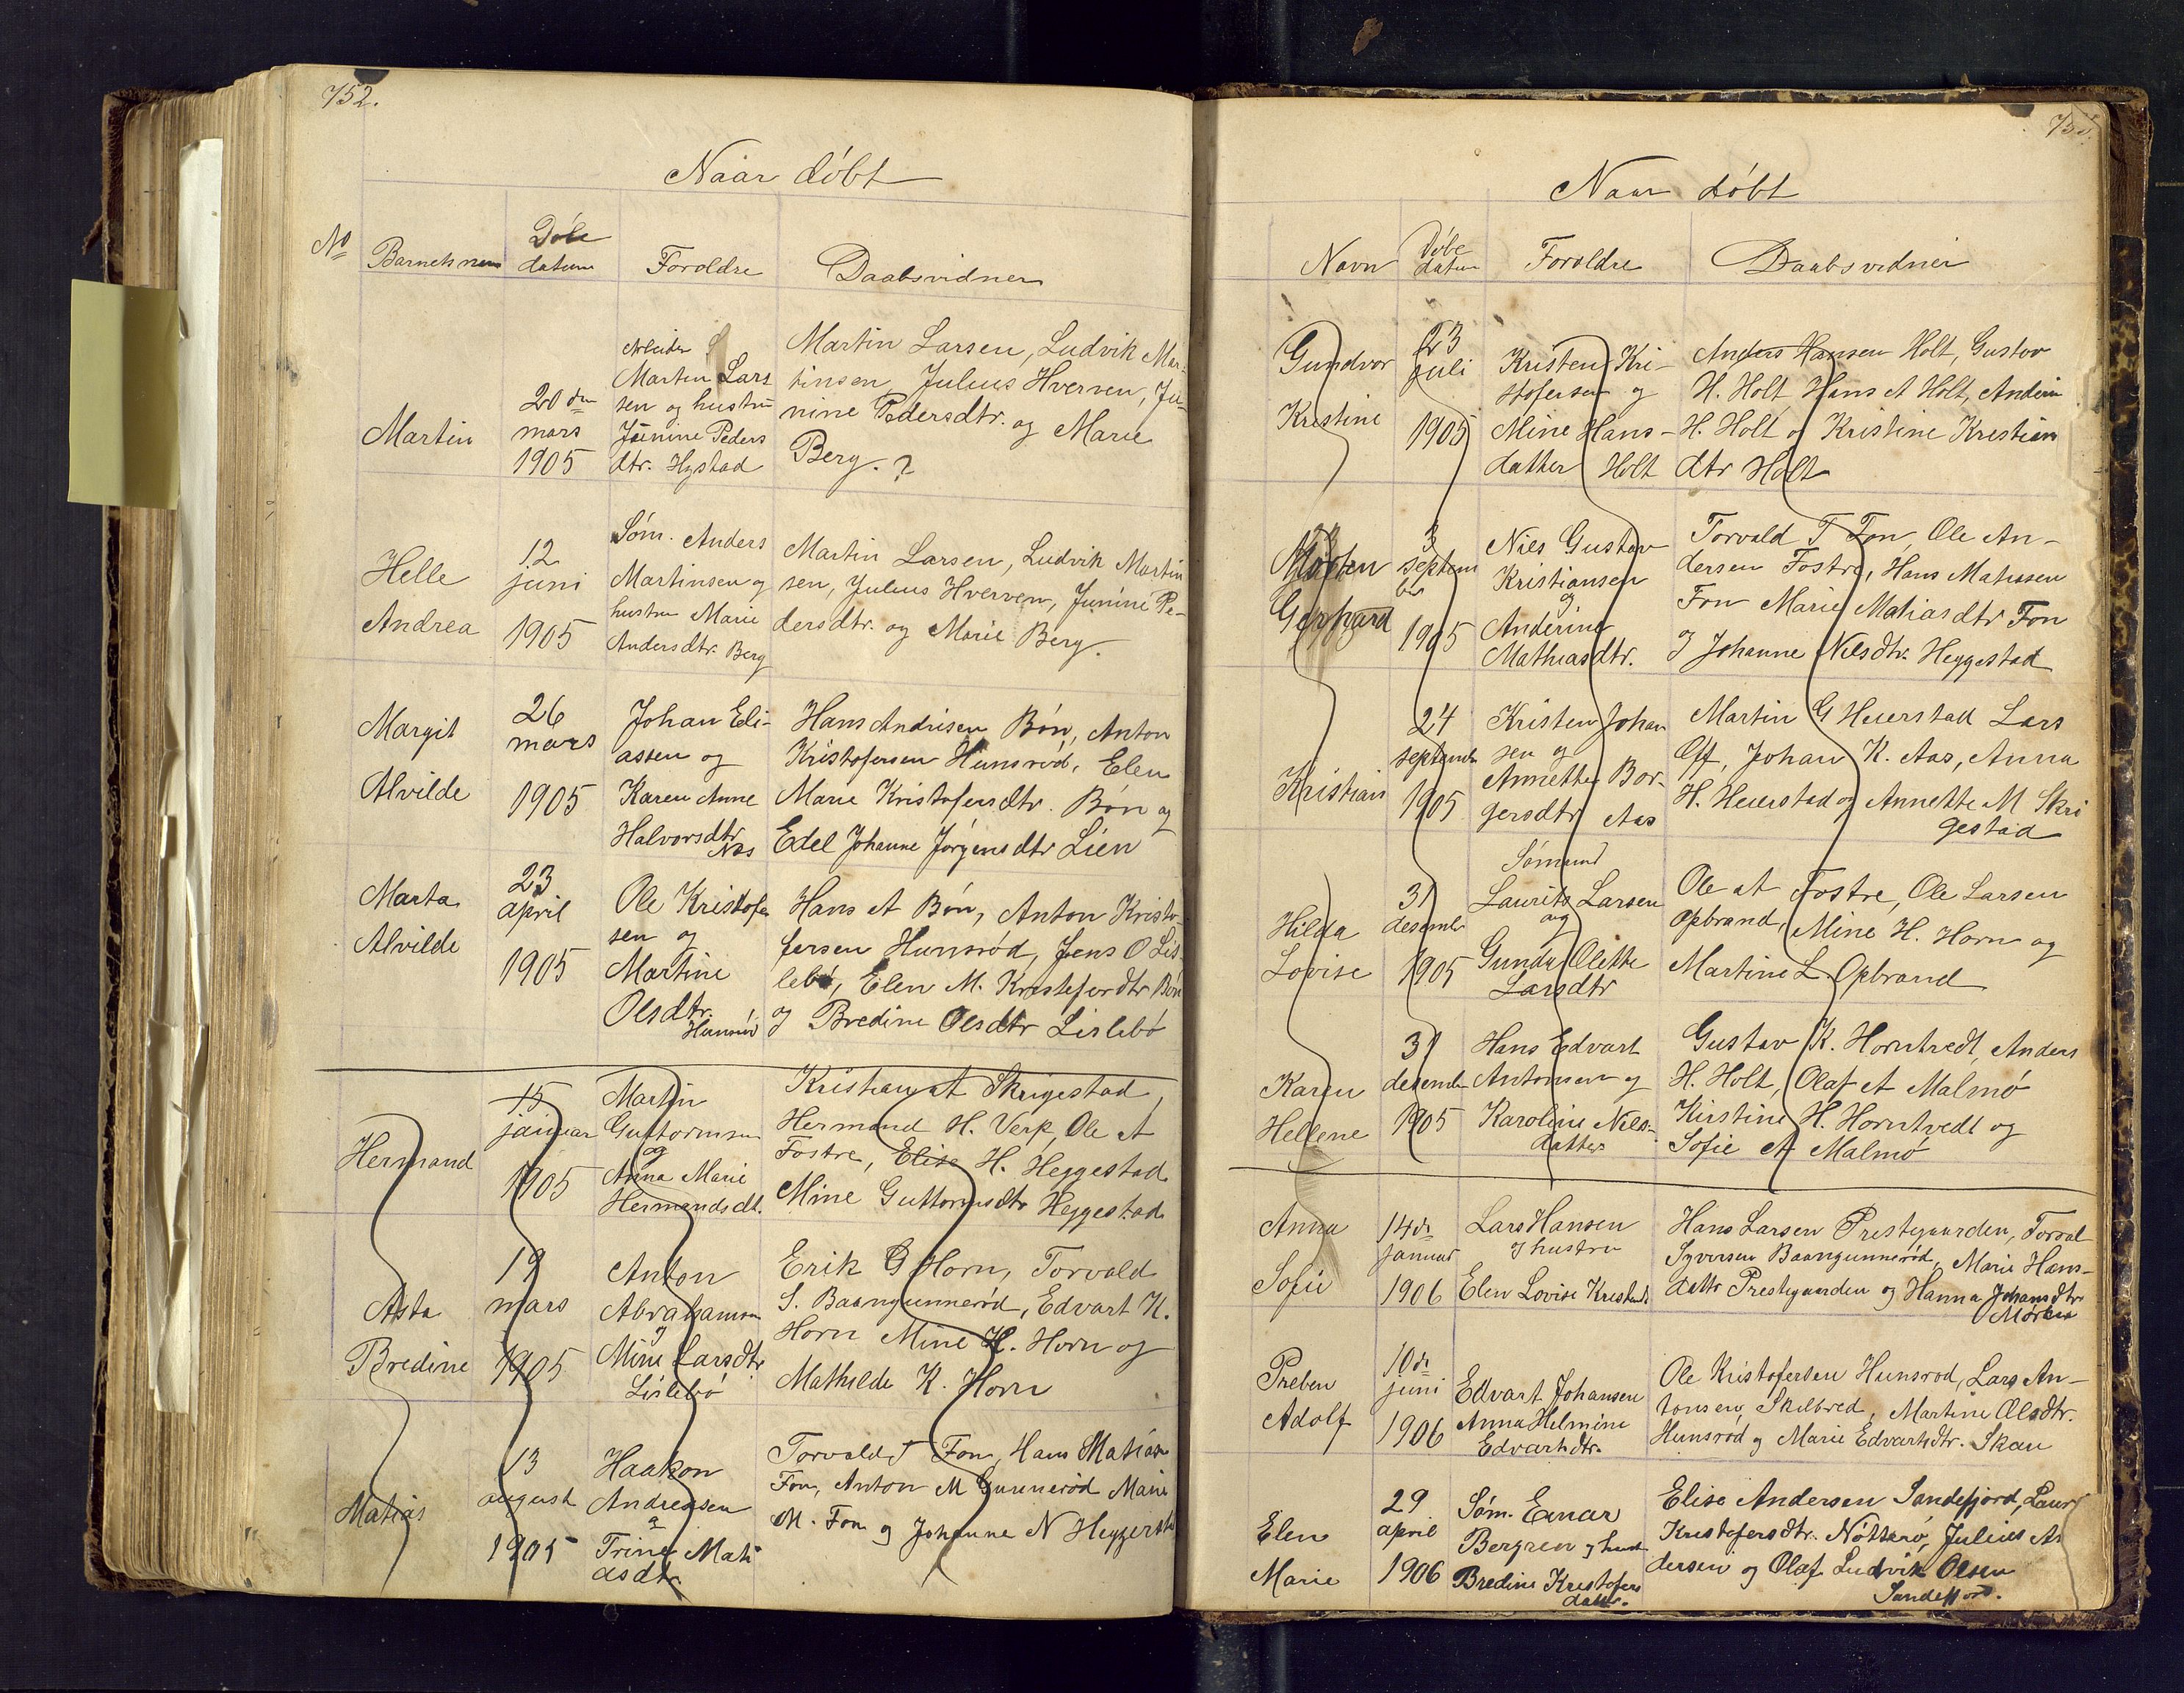 752.
Naar döbt
No
Barnets navn
Döbe
datum
Foroldre
Daabsvidner
Martin
20 de
mars
1905
Arbeider
Martin Lars
sen og hustru
Junine Peders
dtr. Hystad
Martin Larsen, Ludvik Mar-
tinsen, Julius Hverven, Ju-
nine Pedersdtr. og Marie
Berg. ?
Helle
Andrea
12
juni
1905
Söm. Anders
Martinsen og
hustru Marie
Andersdtr. Berg
Martin Larsen, Ludvik Martin
sen, Julius Hverven, Junine Pe-
dersdtr. og Marie Berg.
Margit
Alvilde
26
mars
1905
Johan Eli-
assen og
Karen Anne
Halvorsdtr.
Næs
Hans Andrisen Bön, Anton
Kristofersen Hunsröd, Elen
Marie Kristofersdtr. Bön og
Edel Johanne Jörgensdtr Lien
Marta
Alvilde
23
april
1905
Ole Kristofer
sen og
Martine
Olsdtr.
Hunsröd
Hans A Bön, Anton Kristo-
fersen Hunsröd, Jens O Lis-
lebö, Elen M. Kristoferdtr Bön
og Bredine Olsdtr Lislebö
Hermand
15
januar
1905
Martin
Guttormsen
og
Anna Marie
Hermandsdt.
Kristian A Skrigestad,
Hermand H. Verp, Ole A
Fostre, Elise H. Heggestad
Mine Guttormsdtr Heggestad
Asta
Bredine
19
mars
1905
Anton
Abrahamsen
og
Mine Larsdtr
Lislebö
Erik G Horn, Torvald
S. Baangunneröd, Edvart K.
Horn Mine H. Horn og
Mathilde K. Horn
Matias
13
august
1905
Haakon
Andreasen
og
Trine Mati
asdtr
Torvald T Fon, Hans Matiasen
Fon, Anton M Gunneröd Marie
M. Fon og Johanne N Heggesta
Naar döbt
Navn
Döbe
datum
Foroldre
Daabsvidner
Gundvor
Kristine
23
juli
1905
Kristen Kri-
stofersen og
Mine Hans-
datter Holt
Anders Hansen Holt, Gustav
H. Holt Hans A Holt, Anderin
H. Holt og Kristine Kristian
dtr Holt
Gerhard
3
septem
ber
1905
Nils Gustav
Kristiansen
og
Anderine
Mathiasdtr.
Torvald T Fon, Ole An-
dersen Fostre, Hans Matiasen
Fon Marie Matiasdtr Fon
og Johanne Nilsdtr. Heggestad
Kristian
24
septembr
1905
Kristen Johan
sen og
Annette Bor-
gersdtr Aas
Martin G Heierstad Lars
Off, Johan K. Aas, Anna
H. Heierstad og Annette M Skri
gestad
Hilda
Lovise
31
desembr
1905
Sömand
Laurits Larsen
og
Gunda Olette
Larsdtr
Ole A Fostre, Ole Larsen
Opbrand, Mine H. Horn og
Martine L Opbrand
Karen
Hellene
31
desembr
1905
Hans Edvart
Antonsen og
Karoline Nils-
datter
Gustav K. Horntvedt, Anders
H. Holt, Olaf A Malmö
Kirstine H. Horntvedt og
Sofie A Malmö
Anna
Sofie
14de
januar
1906
Lars Hansen
og hustru
Elen Lovise Kristensdt
Hans Larsen Prestegaarden, Torval
Syversen Baangunneröd, Marie Hans-
dattr Prestegaarden og Hanna Johansdtr
Preben
Adolf
10de
juni
1906
Edvart Johansen
Anna Helmine
Edvartsdtr.
Ole Kristofersen Hunsrod, Lars An-
tonsen, Skilbred, Martine Olsdtr.
Hunsröd og Marie Edvartsdtr. Skau
Elen
Marie
29
april
1906
Söm. Einar
Bergren og hust
Bredine Kristofers
datter.
Elise Andersen Sandefjord, Laur
Kristofersdtr. Nötterö, Julius An
dersen og Olaf Ludvik Olsen
Sandefjord.